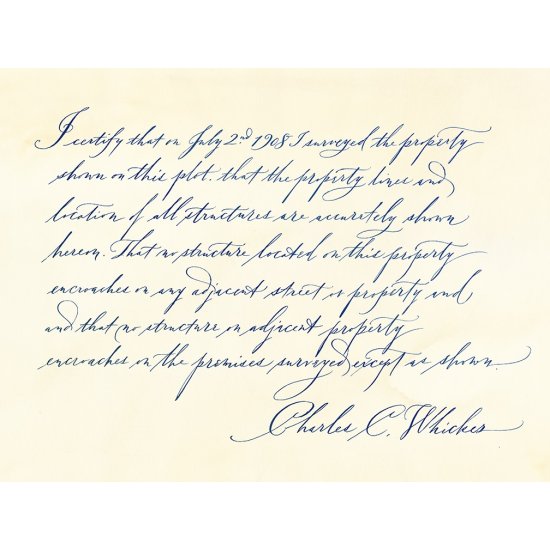 I certify that on July 2nd 1908 I surveyed the property
shown on this plot: that the property lines and
location of all structures are accurately shown
hereon. That no structure located on this property
encroaches on any adjacent street or property and
and that no structure on adjacent property
encroaches on the premises surveyed except as shown.
Charles C. Whicker